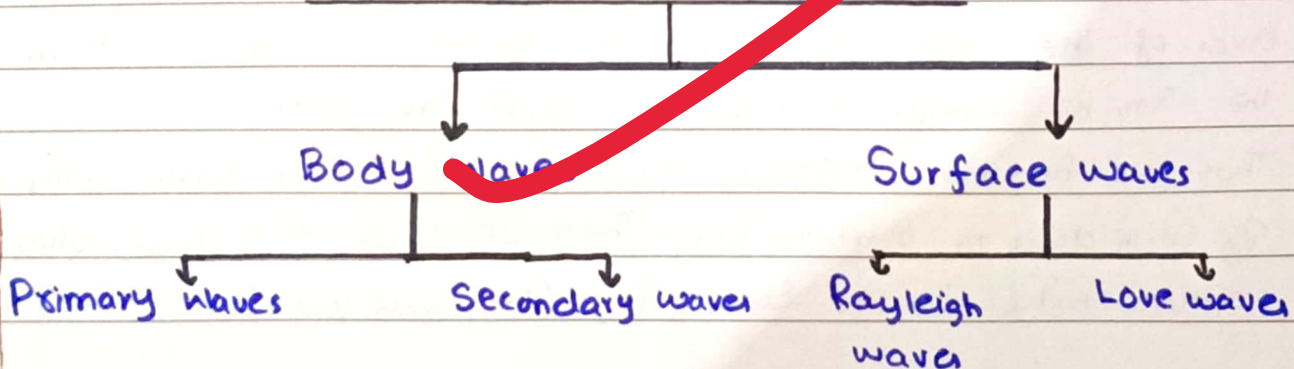 Body waves
Surface waves
Primary waves
Secondary waves
Rayleigh
waves
Love waves